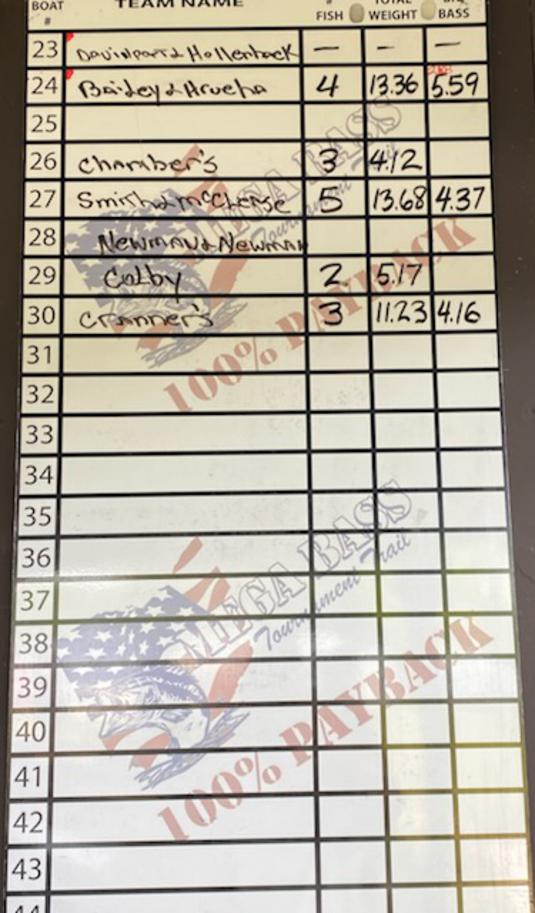 BOAT TEAM NAME # TOTAL BIG
# FISH WEIGHT BASS
23 Davinport & Hollenback — — —
24 Bailey & Arucha 4 13.36 5.59
25
26 Chamber's 3 4.12
27 Smith & McClense 5 13.68 4.37
28 Newman & Newman
29 Colby 2 5.17
30 Cranner's 3 11.23 4.16
31
32
33
34
35
36
37
38
39
40
41
42
43
44
MEGA BASS
Tournament Trail
100% PAYBACK
MEGA BASS
Tournament Trail
100% PAYBACK